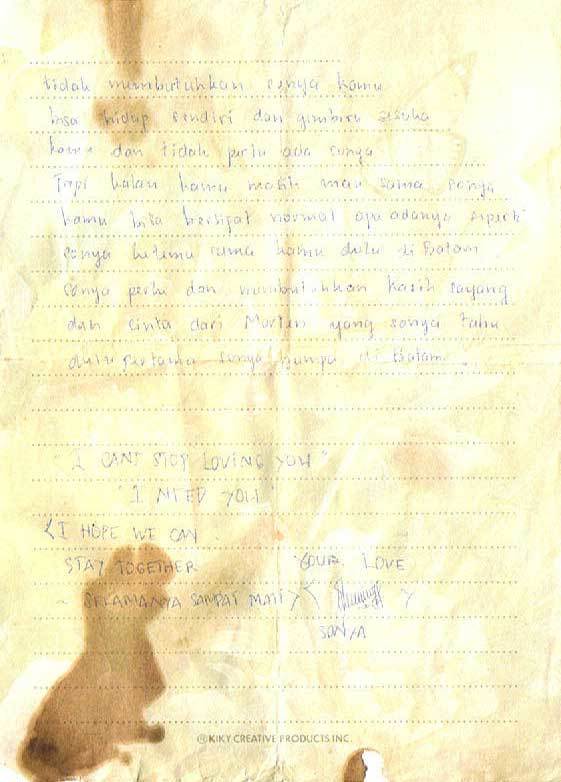 tidak membutuhkan sonya kamu
bisa hidup sendiri dan gembira sesuka
kamu dan tidak perlu ada sonya
Tapi kalau kamu masih mau sama sonya
kamu bisa bersifat normal apa adanya seperti
sonya ketemu sama kamu dulu di Batam
sonya perlu dan membutuhkan kasih sayang
dan cinta dari Morten yang sonya tahu
dulu pertama sonya jumpa di Batam.
"I CANT STOP LOVING YOU"
"I NEED YOU"
I HOPE WE CAN
STAY TOGETHER YOUR LOVE
~ SELAMANYA SAMPAI MATI
SONYA
© KIKY CREATIVE PRODUCTS INC.